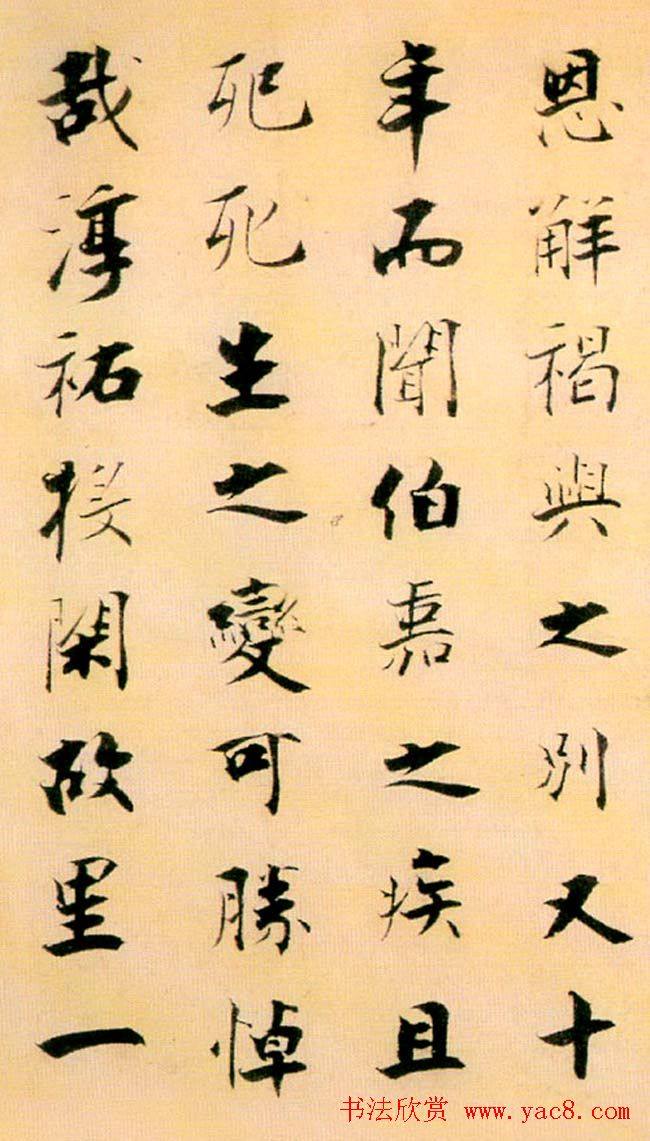 恩解褐與之別又十
年而聞伯嘉之疾且
死死生之變可勝悼
哉淳祐投閑故里一
书法欣赏 www.yac8.com